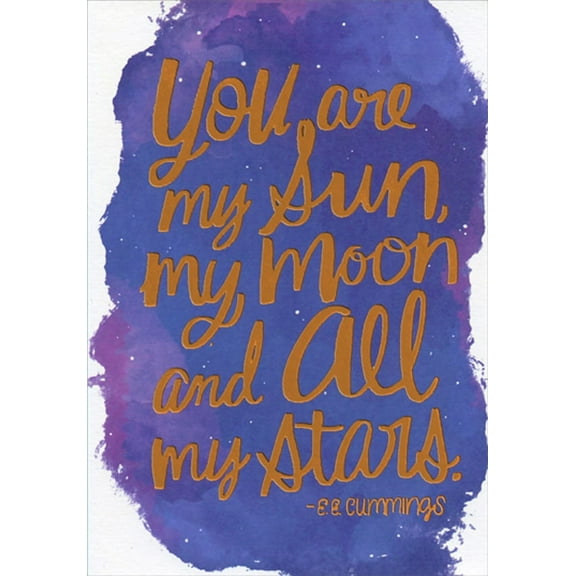 You are
my Sun,
my Moon
and All
my stars.
-E.E. CUMMINGS